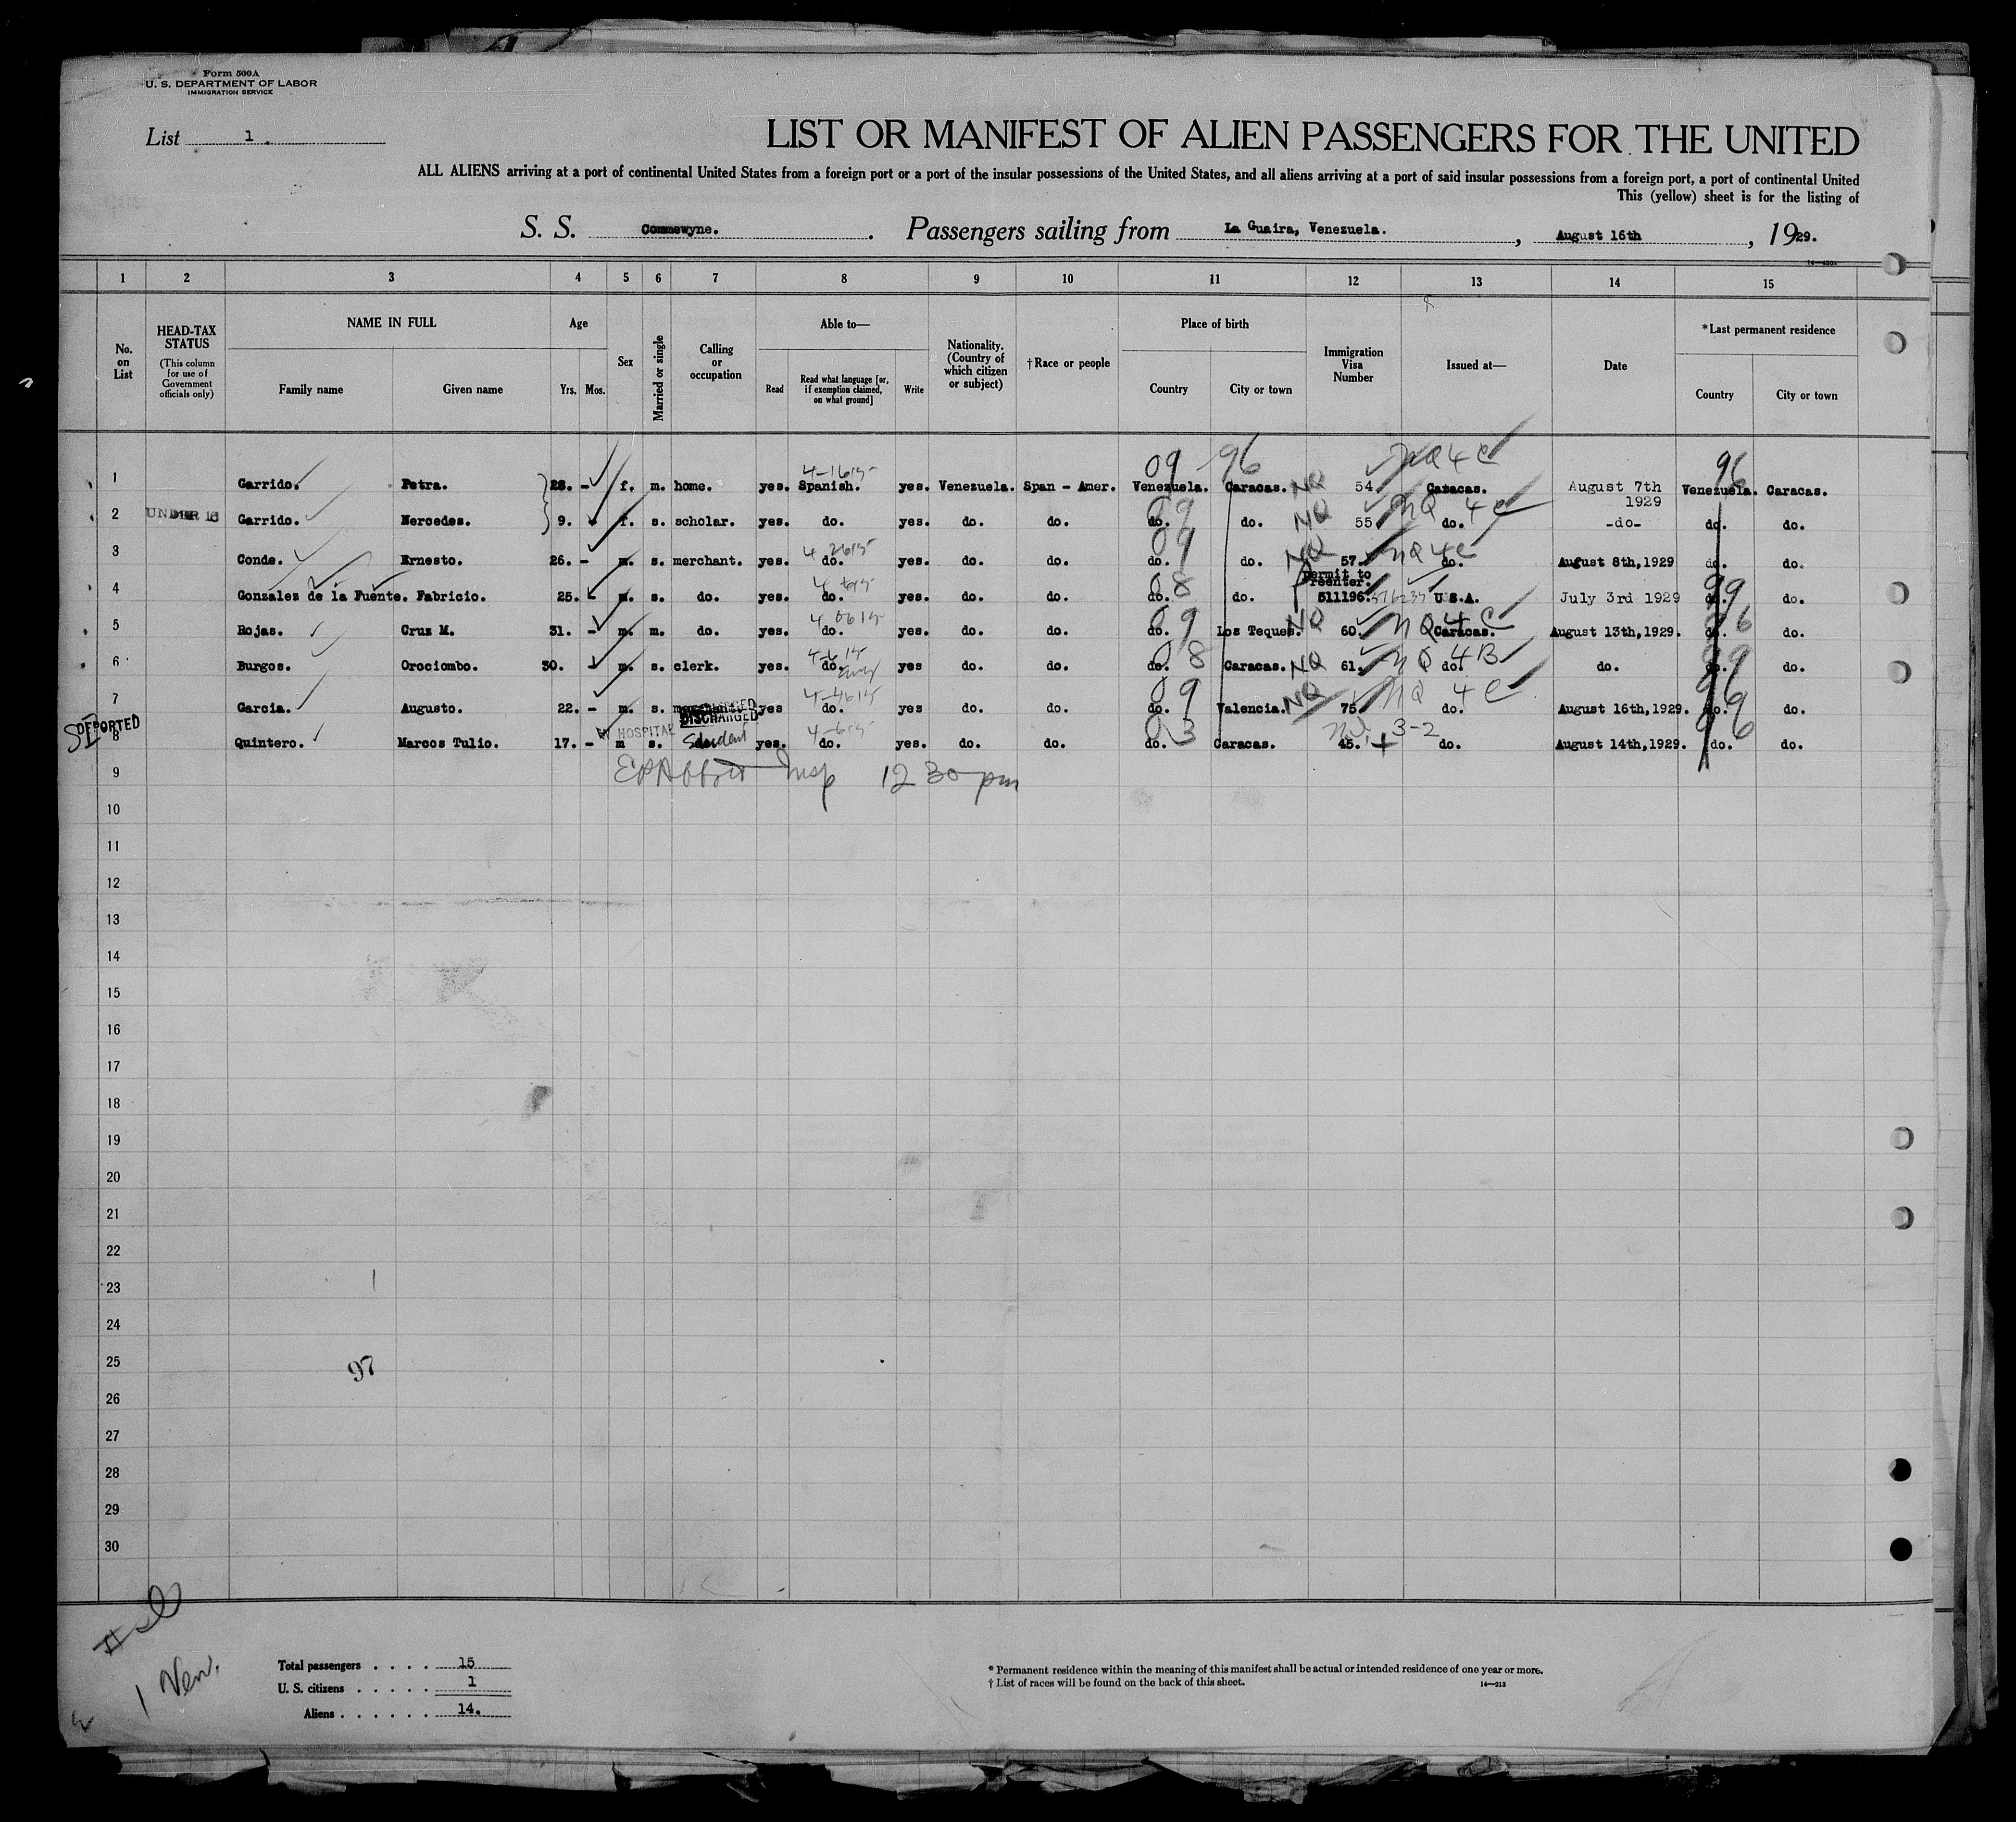 Form 500A
U. S. DEPARTMENT OF LABOR
IMMIGRATION SERVICE
List 1.
LIST OR MANIFEST OF ALIEN PASSENGERS FOR THE UNITED
ALL ALIENS arriving at a port of continental United States from a foreign port or a port of the insular possessions of the United States, and all aliens arriving at a port of said insular possessions from a foreign port, a port of continental United
This (yellow) sheet is for the listing of
S. S. Commewyne. Passengers sailing from La Guaira, Venezuela. , August 16th , 1929.
1 2 3 4 5 6 7 8 9 10 11 12 13 14 15
No. on List
HEAD-TAX STATUS
(This column for use of Government officials only)
NAME IN FULL
Family name Given name
Age
Yrs. Mos.
Sex
Married or single
Calling or occupation
Able to—
Read Read what language [or, if exemption claimed, on what ground] Write
Nationality. (Country of which citizen or subject)
†Race or people
Place of birth
Country City or town
Immigration Visa Number
Issued at—
Date
*Last permanent residence
Country City or town
09 96 NQ 4 C 96
4-1615
1 Garrido. Petra. 28. - f. m. home. yes. Spanish. yes. Venezuela. Span - Amer. Venezuela. Caracas. NQ 54. Caracas. August 7th 1929 Venezuela. Caracas.
09 NQ 4 C
2 UNDER 16 Garrido. Mercedes. 9. - f. s. scholar. yes. do. yes. do. do. do. do. NQ 55 do. -do- do. do.
09 NQ 4 C
3 Conde. Ernesto. 26. - m. s. merchant. yes. do. yes. do. do. do. do. NQ 57. do. August 8th,1929 do. do.
permit to reenter.
08 99
4 Gonzales de la Fuente. Fabricio. 25. - m. s. do. yes. do. yes. do. do. do. do. 511196. U.S.A. July 3rd 1929 do. do.
09 NQ 4 C 96
5 Rojas. Cruz M. 31. - m. m. do. yes. do. yes. do. do. do. Los Teques. NQ 60. Caracas. August 13th,1929. do. do.
08 NQ 4 B 99
6 Burgos. Orociombo. 30. - m. s. clerk. yes. do. yes do. do. do. Caracas. NQ 61. do. do. do. do.
09 NQ 4 C 96
7 Garcia. Augusto. 22. - m. s. merchant. yes do. yes do. do. do. Valencia. NQ 75. do. August 16th,1929. do. do.
DEPORTED
HOSPITAL DISCHARGED
03 3-2 96
8 Quintero. Marcos Tulio. 17. - m s. Student yes. do. yes. do. do. do. Caracas. 45. do. August 14th,1929. do. do.
9 Insp 12 30 pm
10
11
12
13
14
15
16
17
18
19
20
21
22
23
24
25
97
26
27
28
29
30
1 Ven.
Total passengers . . . . 15
U. S. citizens . . . . . 1
Aliens . . . . . . 14.
* Permanent residence within the meaning of this manifest shall be actual or intended residence of one year or more.
† List of races will be found on the back of this sheet.
14—213